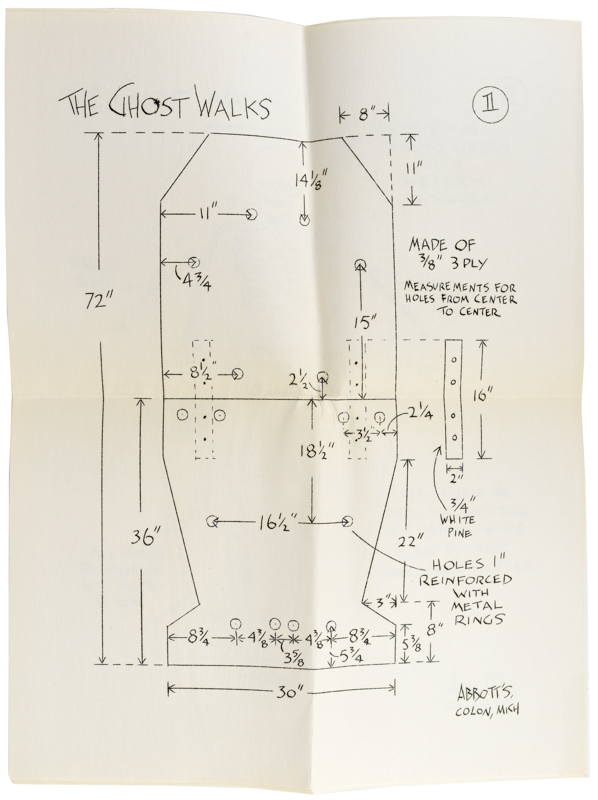 THE GHOST WALKS
II
8"
11"
14 1/8"
11"
4 3/4
MADE OF
3/8" 3 PLY
MEASUREMENTS FOR
HOLES FROM CENTER
TO CENTER
72"
15"
8 1/2"
2 1/2
16"
2 1/4
3 1/2"
18 1/2"
2"
3/4"
WHITE
PINE
16 1/2"
36"
22"
HOLES 1"
REINFORCED
WITH
METAL
RINGS
3"
8 3/4
4 3/8
3 5/8
4 3/8
8 3/4
5 3/4
5 3/8
8"
30"
ABBOTT'S,
COLON, MICH